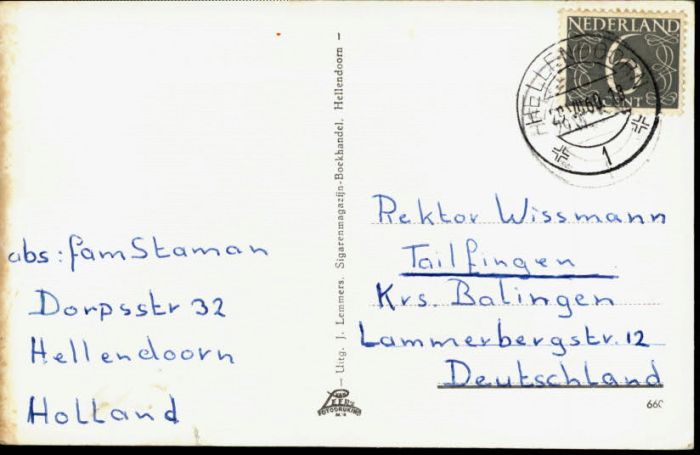 NEDERLAND
6
CENT
HELLENDOORN
1
abs: fam Staman
Dorpsstr 32
Hellendoorn
Holland
— Uitg. J. Lemmers. Sigarenmagazijn-Boekhandel. Hellendoorn —
Rektor Wissmann
Tailfingen
Krs. Balingen
Lammerbergstr. 12
Deutschland
FOTODRUKING
660